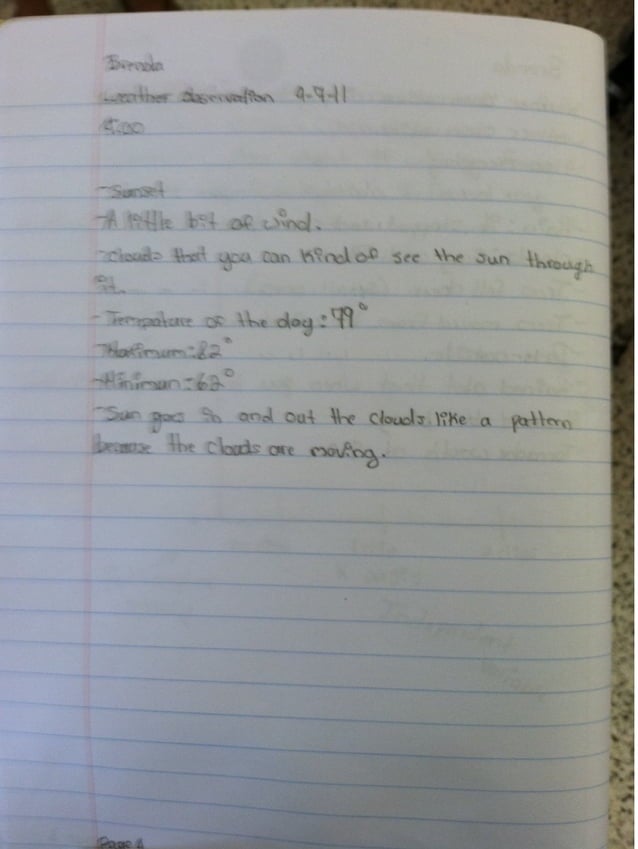 Brenda
Weather observation 9-9-11
5:00
-Sunset
-A little bit of wind.
-clouds that you can kind of see the sun through
it.
-Tempature of the day: 79°
-Maximum: 82°
-Miniman: 62°
-Sun goes in and out the clouds like a pattern
because the clouds are moving.
Page